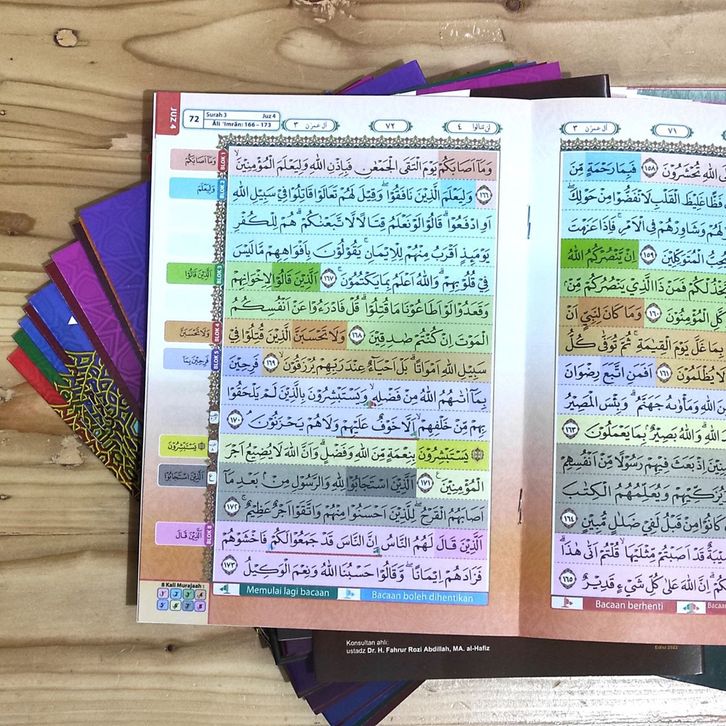 JUZ 4
72 Surah 3 Juz 4
Āli 'Imrān: 166 – 173
اٰل عمرٰن ٣
٧٢
لن تنالوا ٤
وَمَآ اَصَابَكُمْ يَوْمَ الْتَقَى الْجَمْعٰنِ فَبِاِذْنِ اللّٰهِ وَلِيَعْلَمَ الْمُؤْمِنِيْنَۙ
﴿١٦٦﴾ وَلِيَعْلَمَ الَّذِيْنَ نَافَقُوْاۖ وَقِيْلَ لَهُمْ تَعَالَوْا قَاتِلُوْا فِيْ سَبِيْلِ اللّٰهِ
اَوِ ادْفَعُوْاۗ قَالُوْا لَوْ نَعْلَمُ قِتَالًا لَّاتَّبَعْنٰكُمْۗ هُمْ لِلْكُفْرِ
يَوْمَىِٕذٍ اَقْرَبُ مِنْهُمْ لِلْاِيْمَانِۚ يَقُوْلُوْنَ بِاَفْوَاهِهِمْ مَّا لَيْسَ
فِيْ قُلُوْبِهِمْۗ وَاللّٰهُ اَعْلَمُ بِمَا يَكْتُمُوْنَۚ ﴿١٦٧﴾ اَلَّذِيْنَ قَالُوْا لِاِخْوَانِهِمْ
وَقَعَدُوْا لَوْ اَطَاعُوْنَا مَا قُتِلُوْاۗ قُلْ فَادْرَءُوْا عَنْ اَنْفُسِكُمُ
الْمَوْتَ اِنْ كُنْتُمْ صٰدِقِيْنَ ﴿١٦٨﴾ وَلَا تَحْسَبَنَّ الَّذِيْنَ قُتِلُوْا فِيْ
سَبِيْلِ اللّٰهِ اَمْوَاتًاۗ بَلْ اَحْيَاۤءٌ عِنْدَ رَبِّهِمْ يُرْزَقُوْنَۙ ﴿١٦٩﴾ فَرِحِيْنَ
بِمَآ اٰتٰىهُمُ اللّٰهُ مِنْ فَضْلِهٖۙ وَيَسْتَبْشِرُوْنَ بِالَّذِيْنَ لَمْ يَلْحَقُوْا
بِهِمْ مِّنْ خَلْفِهِمْۙ اَلَّا خَوْفٌ عَلَيْهِمْ وَلَا هُمْ يَحْزَنُوْنَۘ ﴿١٧٠﴾
يَسْتَبْشِرُوْنَ بِنِعْمَةٍ مِّنَ اللّٰهِ وَفَضْلٍۗ وَاَنَّ اللّٰهَ لَا يُضِيْعُ اَجْرَ
الْمُؤْمِنِيْنَۚ ﴿١٧١﴾ اَلَّذِيْنَ اسْتَجَابُوْا لِلّٰهِ وَالرَّسُوْلِ مِنْۢ بَعْدِ مَآ
اَصَابَهُمُ الْقَرْحُۖ لِلَّذِيْنَ اَحْسَنُوْا مِنْهُمْ وَاتَّقَوْا اَجْرٌ عَظِيْمٌۚ ﴿١٧٢﴾
اَلَّذِيْنَ قَالَ لَهُمُ النَّاسُ اِنَّ النَّاسَ قَدْ جَمَعُوْا لَكُمْ فَاخْشَوْهُمْ
فَزَادَهُمْ اِيْمَانًاۖ وَّقَالُوْا حَسْبُنَا اللّٰهُ وَنِعْمَ الْوَكِيْلُ ﴿١٧٣﴾
وَمَآ اَصَابَكُمْ
BLOK 1
وَلِيَعْلَمَ
اَلَّذِيْنَ قَالُوْا
BLOK 3
وَلَا تَحْسَبَنَّ
BLOK 4
فَرِحِيْنَ بِمَآ
BLOK 5
يَسْتَبْشِرُوْنَ
اَلَّذِيْنَ اسْتَجَابُوْا
اَلَّذِيْنَ قَالَ
BLOK 8
8 Kali Murajaah :
Memulai lagi bacaan
Bacaan boleh dihentikan
اٰل عمرٰن ٣
٧١
اللّٰهِ تُحْشَرُوْنَ ﴿١٥٨﴾ فَبِمَا رَحْمَةٍ مِّنَ
فَظًّا غَلِيْظَ الْقَلْبِ لَانْفَضُّوْا مِنْ حَوْلِكَۖ
لَهُمْ وَشَاوِرْهُمْ فِى الْاَمْرِۚ فَاِذَا عَزَمْتَ
يُحِبُّ الْمُتَوَكِّلِيْنَ ﴿١٥٩﴾ اِنْ يَّنْصُرْكُمُ اللّٰهُ
يَخْذُلْكُمْ فَمَنْ ذَا الَّذِيْ يَنْصُرُكُمْ مِّنْۢ
كَّلِ الْمُؤْمِنُوْنَ ﴿١٦٠﴾ وَمَا كَانَ لِنَبِيٍّ اَنْ
بِمَا غَلَّ يَوْمَ الْقِيٰمَةِۚ ثُمَّ تُوَفّٰى كُلُّ
لَا يُظْلَمُوْنَ ﴿١٦١﴾ اَفَمَنِ اتَّبَعَ رِضْوَانَ
اللّٰهِ وَمَأْوٰىهُ جَهَنَّمُۗ وَبِئْسَ الْمَصِيْرُ
﴿١٦٢﴾ اللّٰهِۗ وَاللّٰهُ بَصِيْرٌۢ بِمَا يَعْمَلُوْنَ
ﻨِيْنَ اِذْ بَعَثَ فِيْهِمْ رَسُوْلًا مِّنْ اَنْفُسِهِمْ
يُزَكِّيْهِمْ وَيُعَلِّمُهُمُ الْكِتٰبَ
كَانُوْا مِنْ قَبْلُ لَفِيْ ضَلٰلٍ مُّبِيْنٍ ﴿١٦٤﴾
مُّصِيْبَةٌ قَدْ اَصَبْتُمْ مِّثْلَيْهَاۙ قُلْتُمْ اَنّٰى هٰذَاۗ
كُمْۗ اِنَّ اللّٰهَ عَلٰى كُلِّ شَيْءٍ قَدِيْرٌ ﴿١٦٥﴾
Bacaan berhenti
Konsultan ahli:
ustadz Dr. H. Fahrur Rozi Abdillah, MA. al-Hafiz
Edisi 2022